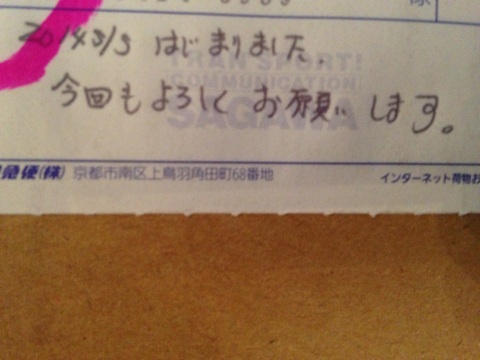 様
はじまりました
今回もよろしくお願いします。
TRANSPORT!
COMMUNICATION
SAGAWA
急便(株) 京都市南区上鳥羽角田町68番地
インターネット荷物お